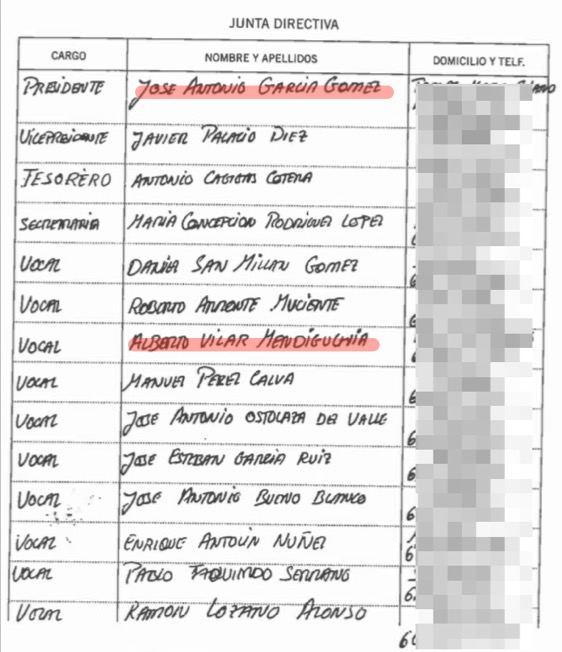 JUNTA DIRECTIVA
CARGO NOMBRE Y APELLIDOS DOMICILIO Y TELF.
PRESIDENTE JOSE ANTONIO GARCIA GOMEZ
VICEPRESIDENTE JAVIER PALACIO DIEZ
TESORERO ANTONIO COTERA
SECRETARIA MARIA CONCEPCION RODRIGUEZ LOPEZ
VOCAL SAN MILLAN GOMEZ
VOCAL ROBERTO MUCIENTE
VOCAL ALBERTO VILAR MENDIGUCHIA
VOCAL MANUEL PEREZ CALVA
VOCAL JOSE ANTONIO OSTOLAZA DEL VALLE
VOCAL JOSE ESTEBAN GARCIA RUIZ
VOCAL JOSE ANTONIO BUENO BLANCO
VOCAL ENRIQUE ANTOLIN NUÑEZ
VOCAL PABLO SERRANO
VOCAL RAMON LOZANO ALONSO